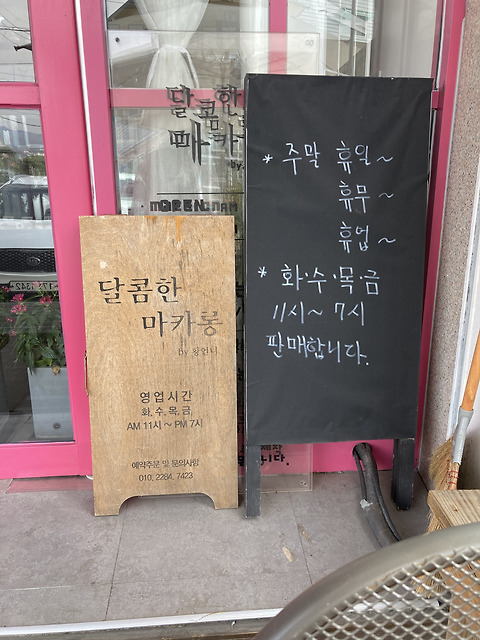 달콤한
마카롱
by 왕언니
영업시간
화.수.목.금
AM 11시 ~ PM 7시
예약주문 및 문의사항
010. 2284. 7423
* 주말 휴일 ~
휴무 ~
휴업 ~
* 화·수·목·금
11시 ~ 7시
판매합니다.
달콤한